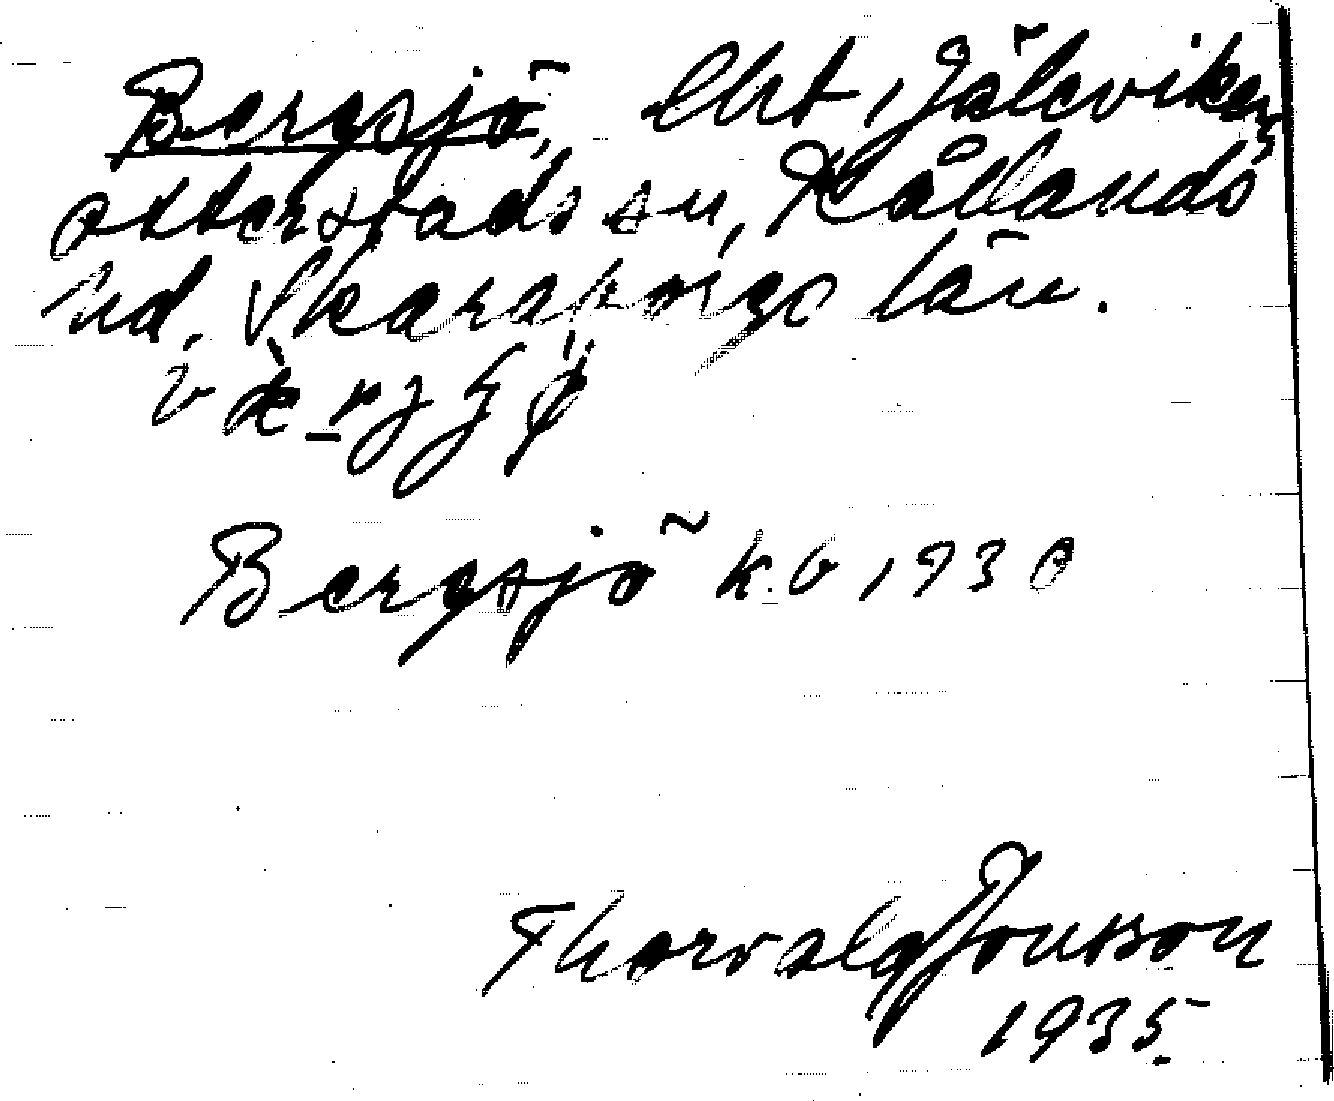 Bergsjö, lht, Gäleviken,
Otterstads sn, Kållands
hd. Skaraborgs län.
Bergsjö k.b 1930
Thorvald Jonsson
1935